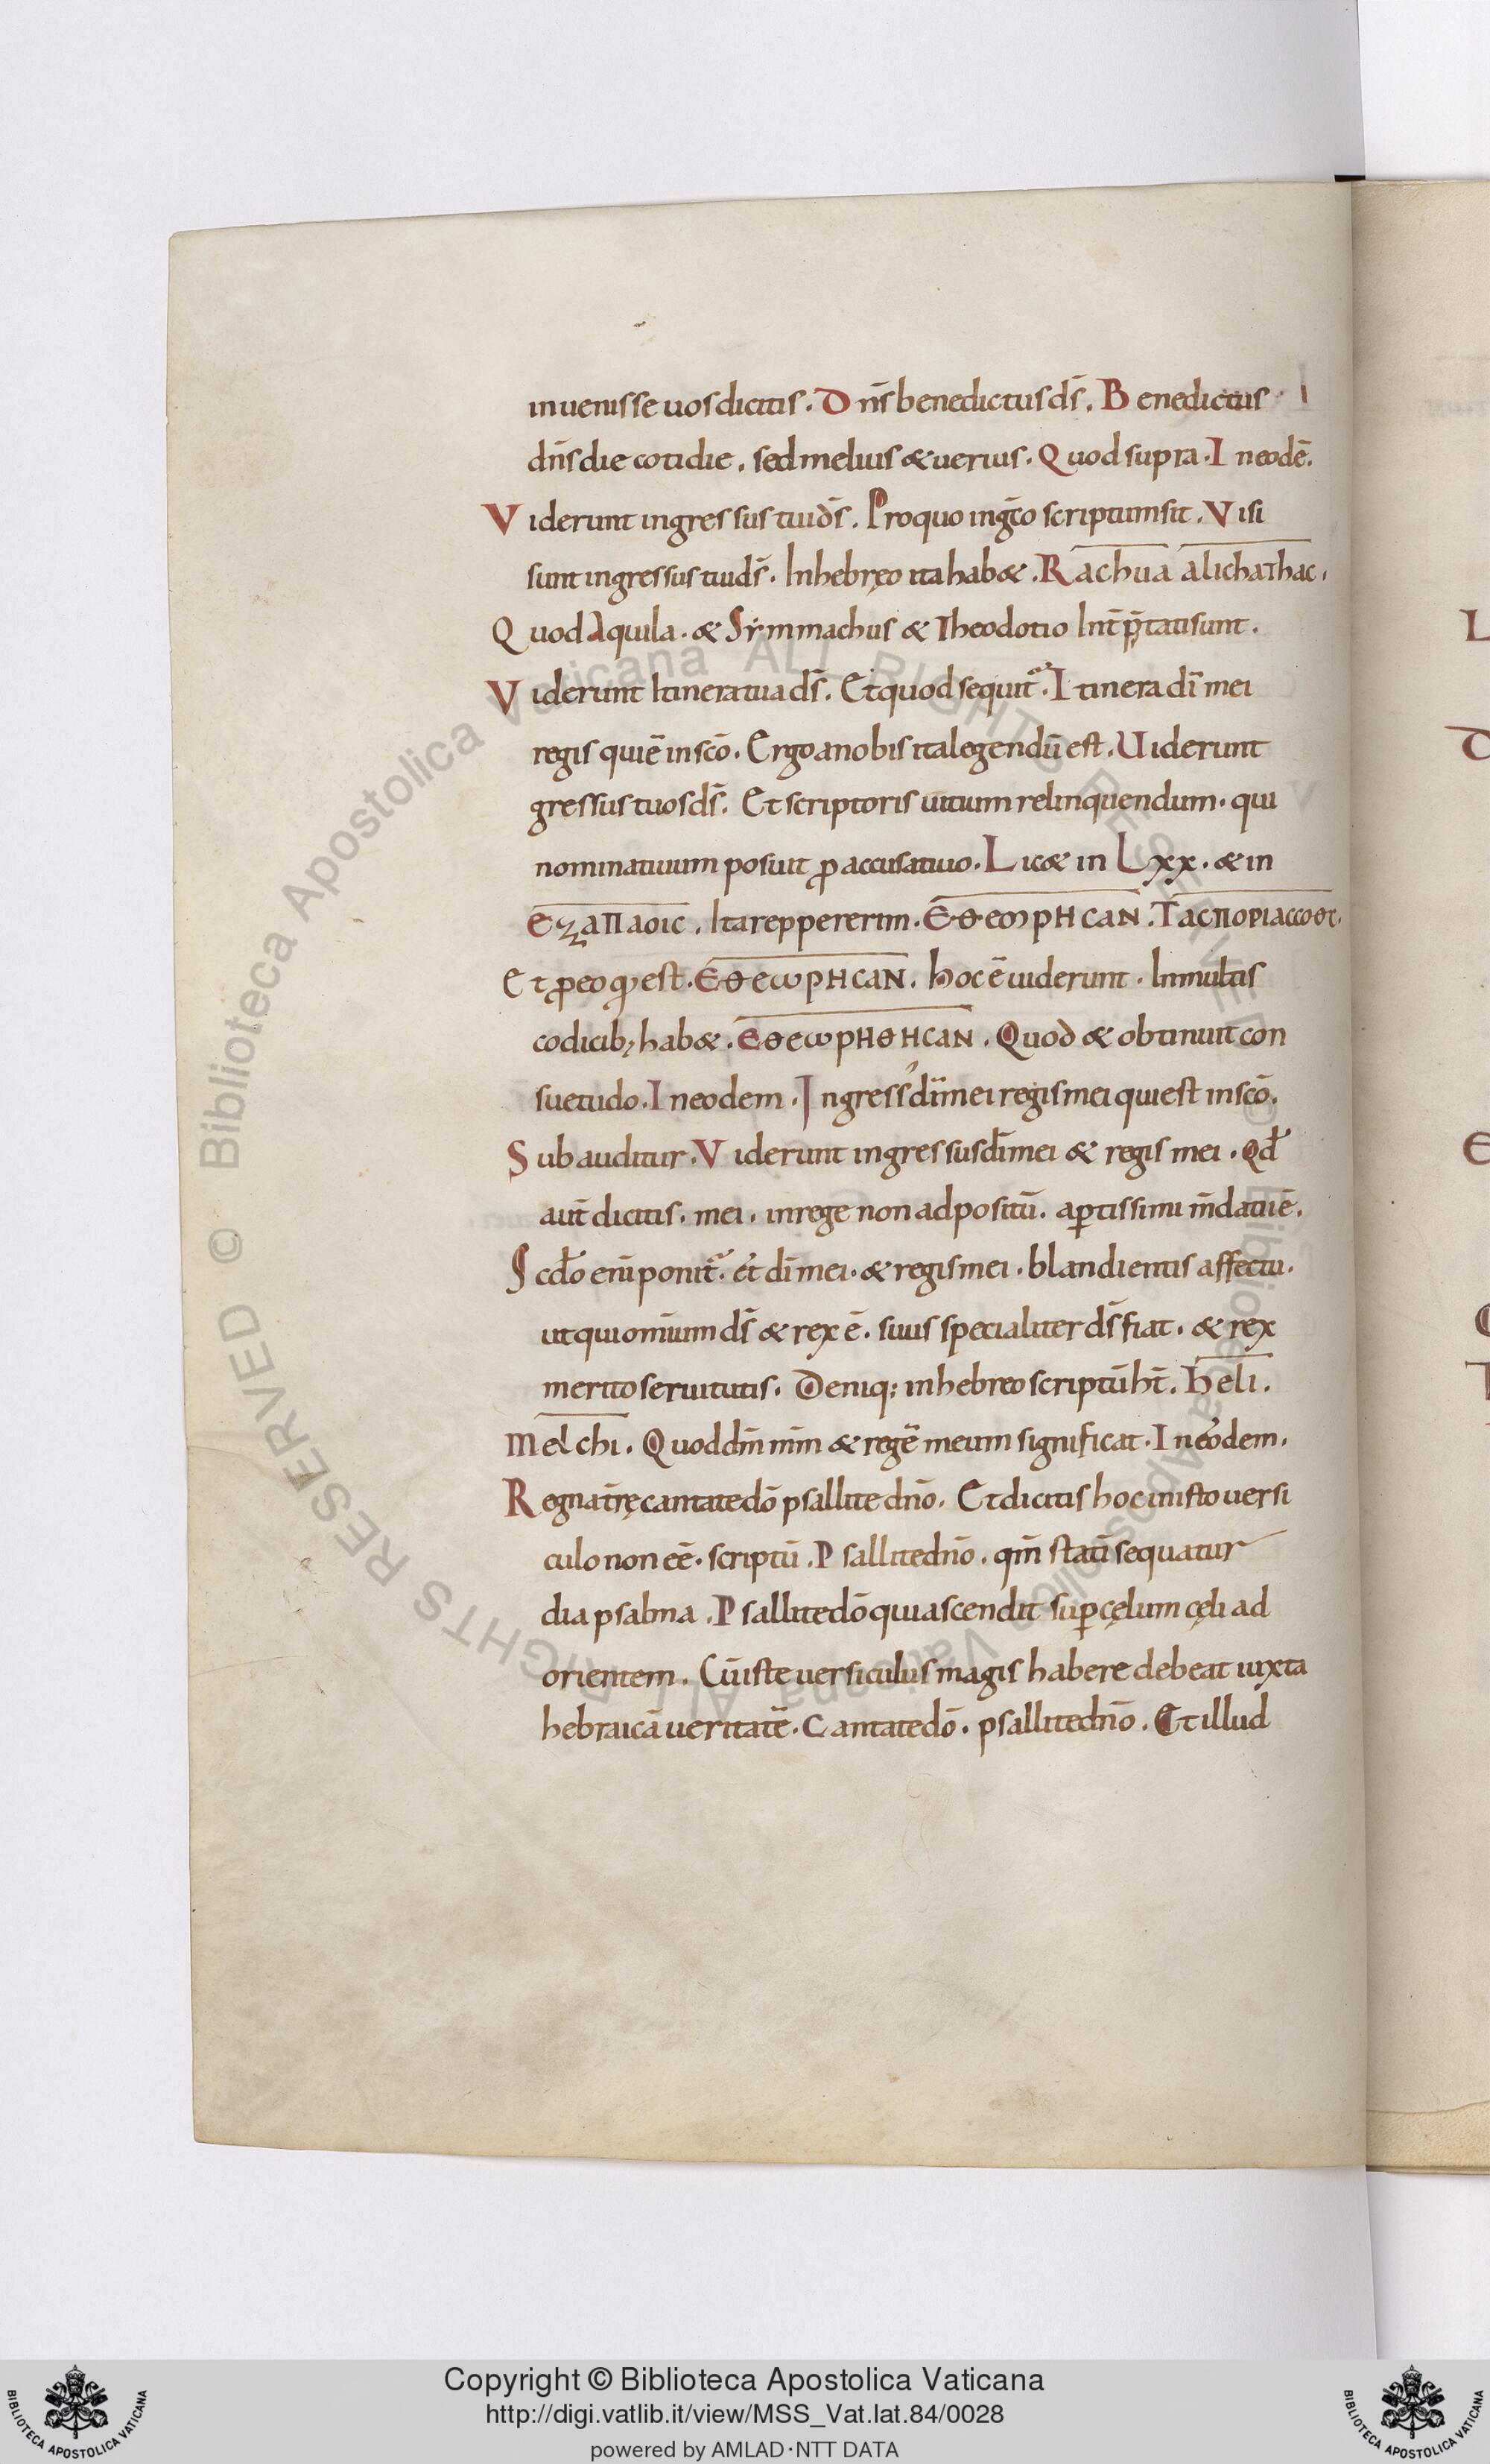 inuenisse uos dicitis. Dn̄s benedictus ds̄. Benedictus
dn̄s die cotidie. sed melius & uerius. Quod supra. In eodē.
Viderunt ingressus tui ds̄. Pro quo in gc̄o scriptum sit. Visi
sunt ingressus tui ds̄. In hebręo ita hab&. Rachua alichathac.
Quod Aquila. & Sẏmmachus & Theodotio Int̄pr̄tati sunt.
Viderunt Itinera tua ds̄. Et quod sequit̄. Itinera dī mei
regis qui ē in scō. Ergo a nobis ita legendū est. Uiderunt
gressus tuos ds̄. Et scriptoris uitium relinquendum. qui
nominatiuum posuit ꝓ accusatiuo. Lic& in Lxx. & in
ЄZAΠΛOIC. Ita reppererim. ЄΘЄωPHCAN. TACΠOPIACCOΘC.
Et ꝓ eo qđ est. ЄΘЄωPHCAN. hoc ē uiderunt. In multis
codicib; hab&. ЄΘЄωPHΘHCAN. Quod & obtinuit con
suetudo. In eodem. Ingress' dī mei regis mei qui est in scō.
Subauditur. Viderunt ingressus dī mei & regis mei. Qđ
aut̄ dicitis. mei. in rege non adpositū. aꝑtissimi m̄datii ē.
Scđo eni̅ ponit̄. et dī mei. & regis mei. blandientis affectu.
ut qui omīum ds̄ & rex ē. suus specialiter ds̄ fiat. & rex
merito seruitutis. Deniq; in hebreo scriptū ht̄. heli.
melchi. Quod dm̄ mm̄ & regē meum significat. In eodem.
Regna tr̄ę cantate dō psallite dn̄o. Et dicitis hoc in isto uersi
culo non eē. scriptū. Psallite dn̄o. qm̄ statī sequatur
diapsalma. Psallite dō qui ascendit suꝑ cęlum cęli ad
orientem. Cū iste uersiculus magis habere debeat iuxta
hebraicā ueritatē. Cantate dō. psallite dn̄o. Et illud
Copyright © Biblioteca Apostolica Vaticana
http://digi.vatlib.it/view/MSS_Vat.lat.84/0028
powered by AMLAD·NTT DATA